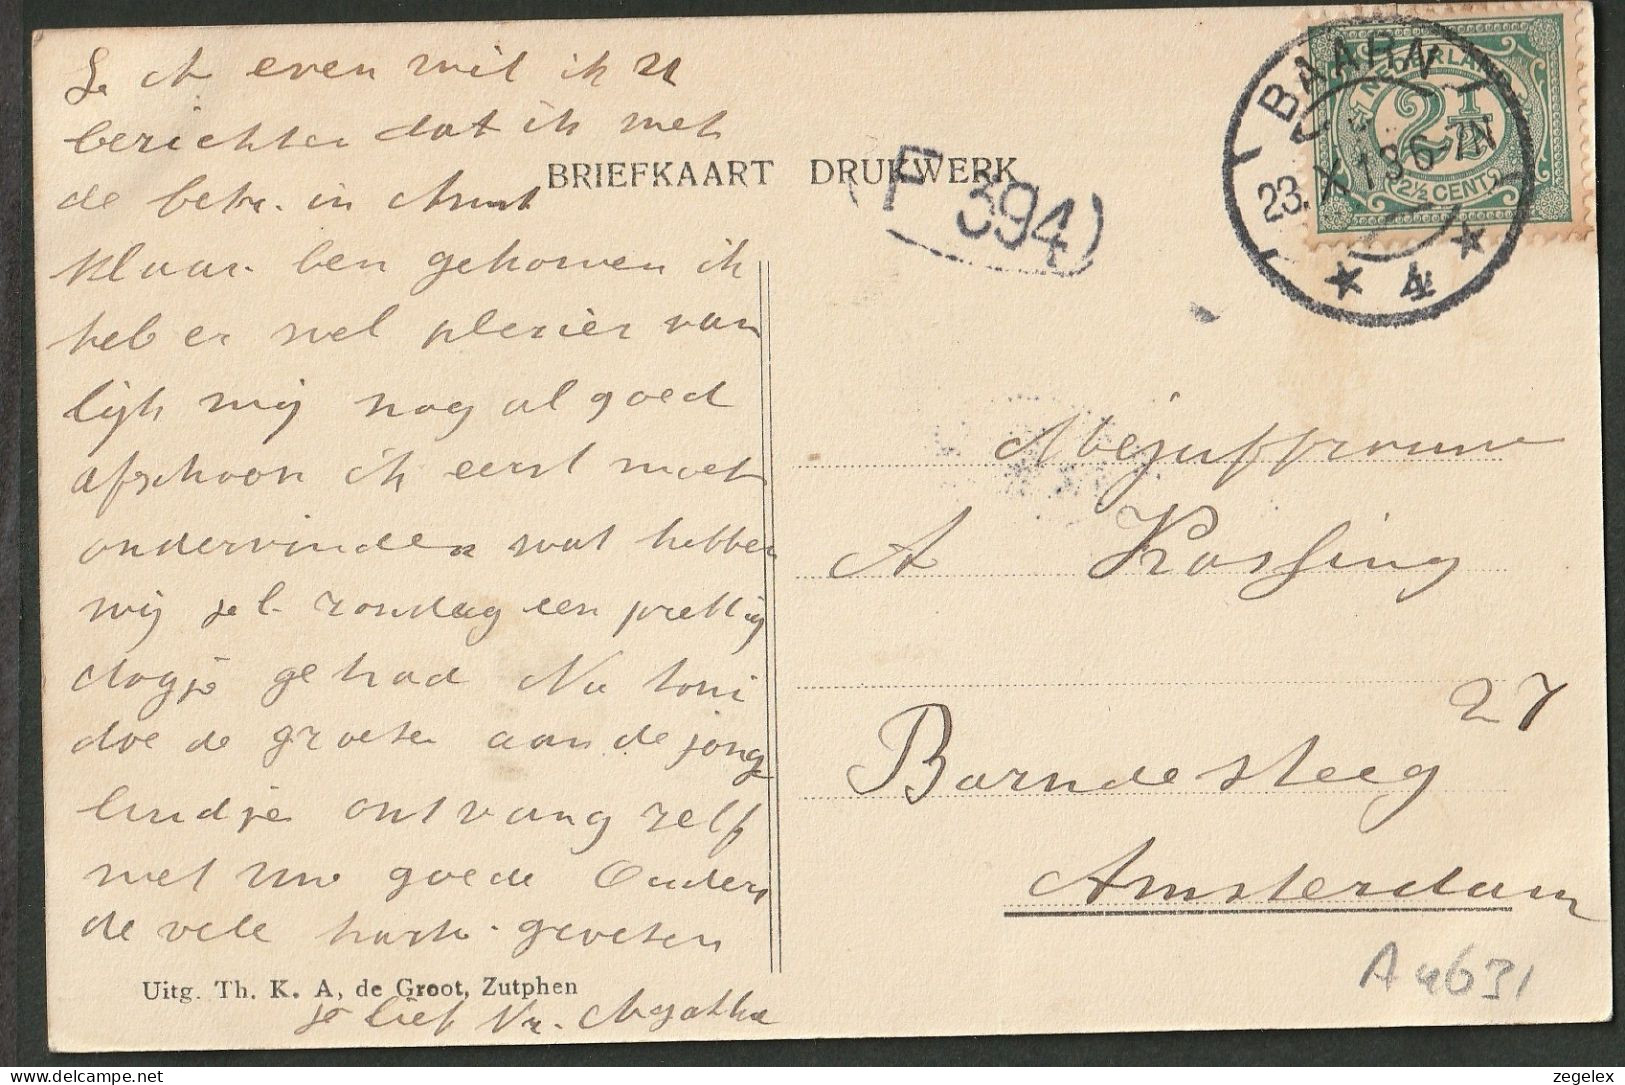 even wil ik u
berichten dat ik met
de betr. in Arnst
klaar ben gekomen ik
heb er wel plezier van
lijk mij nog al goed
afschoon ik eerst moet
ondervinden wat hebben
wij zondag een prettig
dagje gehad Nu toni
doe de groeten aan de jong
luidje ontvang zelf
met uw goede Ouders
de vele hart. groeten
je lief Vr. Agatha
Uitg. Th. K. A. de Groot, Zutphen
BRIEFKAART DRUKWERK
(F 394)
NEDERLAND
2½
2½ CENT
BAARN
23.X.13 6-7N
4
Mejuffrouw
A Krossing
27
Barndesteeg
Amsterdam
A4631
zegelex